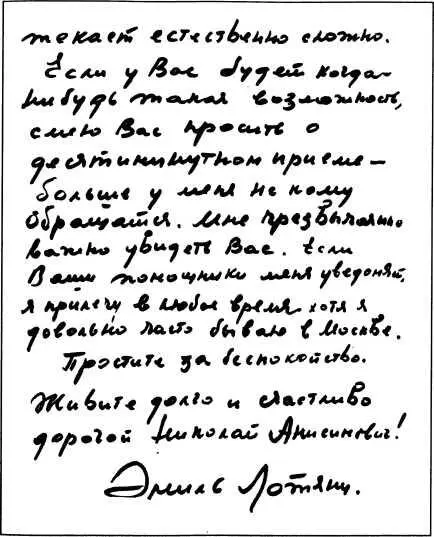 текает естественно сложно.
Если у Вас будет когда-
нибудь такая возможность,
смею Вас просить о
десятиминутном приеме –
больше у меня не кому
обращатся. Мне презвычайно
важно увидеть Вас. Если
Ваши помощники меня уведомят,
я прилечу в любое время хотя я
довольно часто бываю в Москве.
Простите за беспокойство.
Живите долго и счастливо
дорогой Николай Анисимович!
Эмиль Лотяну.